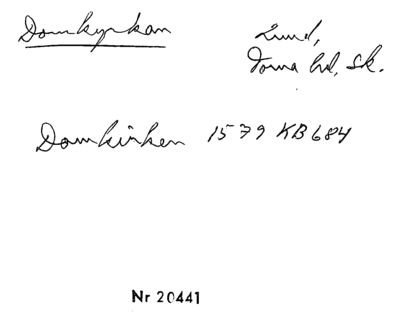 Domkyrkan
Lund,
Torna hd, Sk.
Domkirken 1579 KB 684
Nr 20441